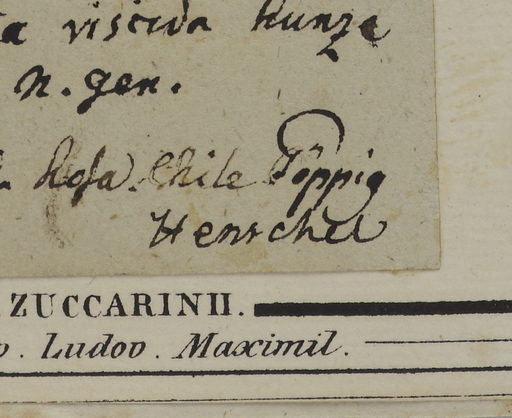 viscida Kunze
n. gen.
Chile Pöppig
Henschel
ZUCCARINII.
. Ludov. Maximil.